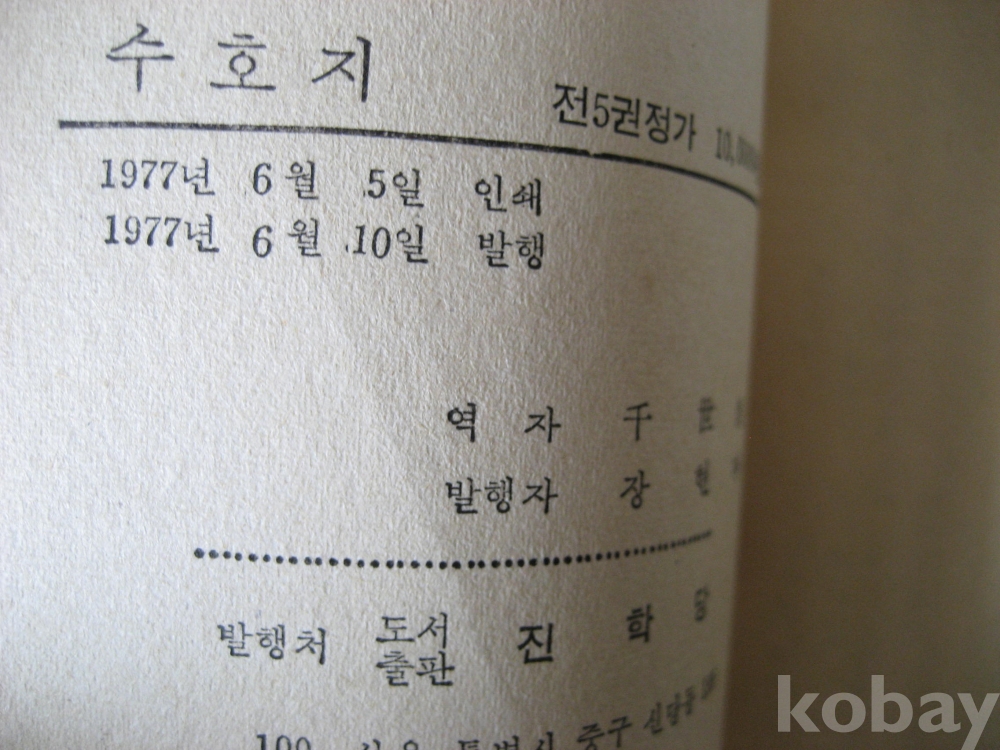 수호지
전5권정가 10,
1977년 6월 5일 인쇄
1977년 6월 10일 발행
역자 千
발행자 장현
발행처 도서출판 진학당
100 서울특별시 중구 신당동
kobay